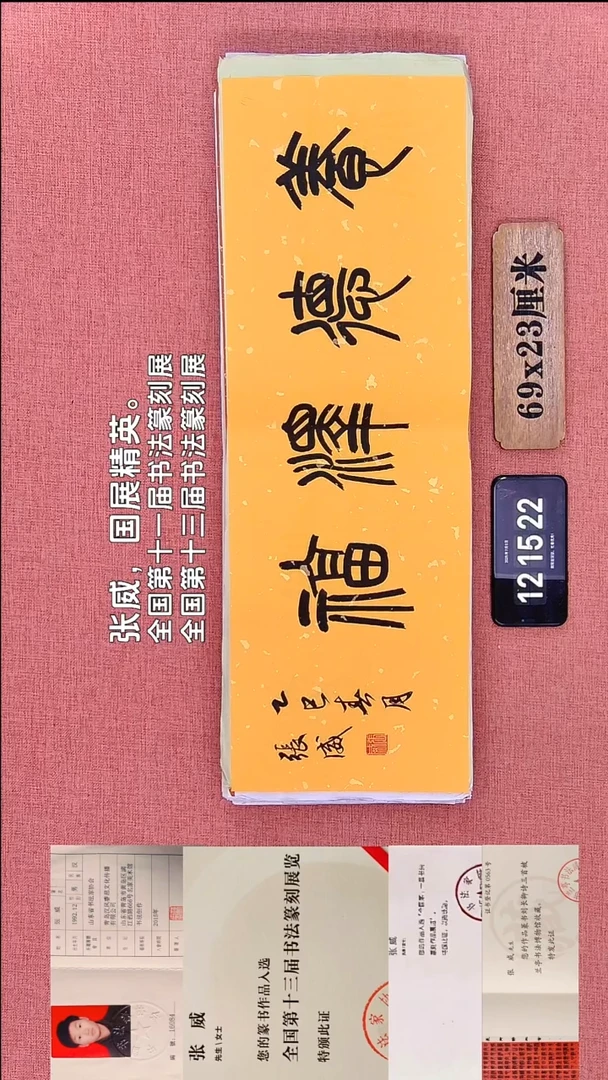 张威，国展精英。
全国第十一届书法篆刻展
全国第十三届书法篆刻展
養德澤福
乙巳春月
張威
69x23厘米
12 15 22
张 威
先生\女士
您的篆书作品入选
全国第十三届书法篆刻展览
特颁此证
兰亭书法博物馆收藏。
特发此证